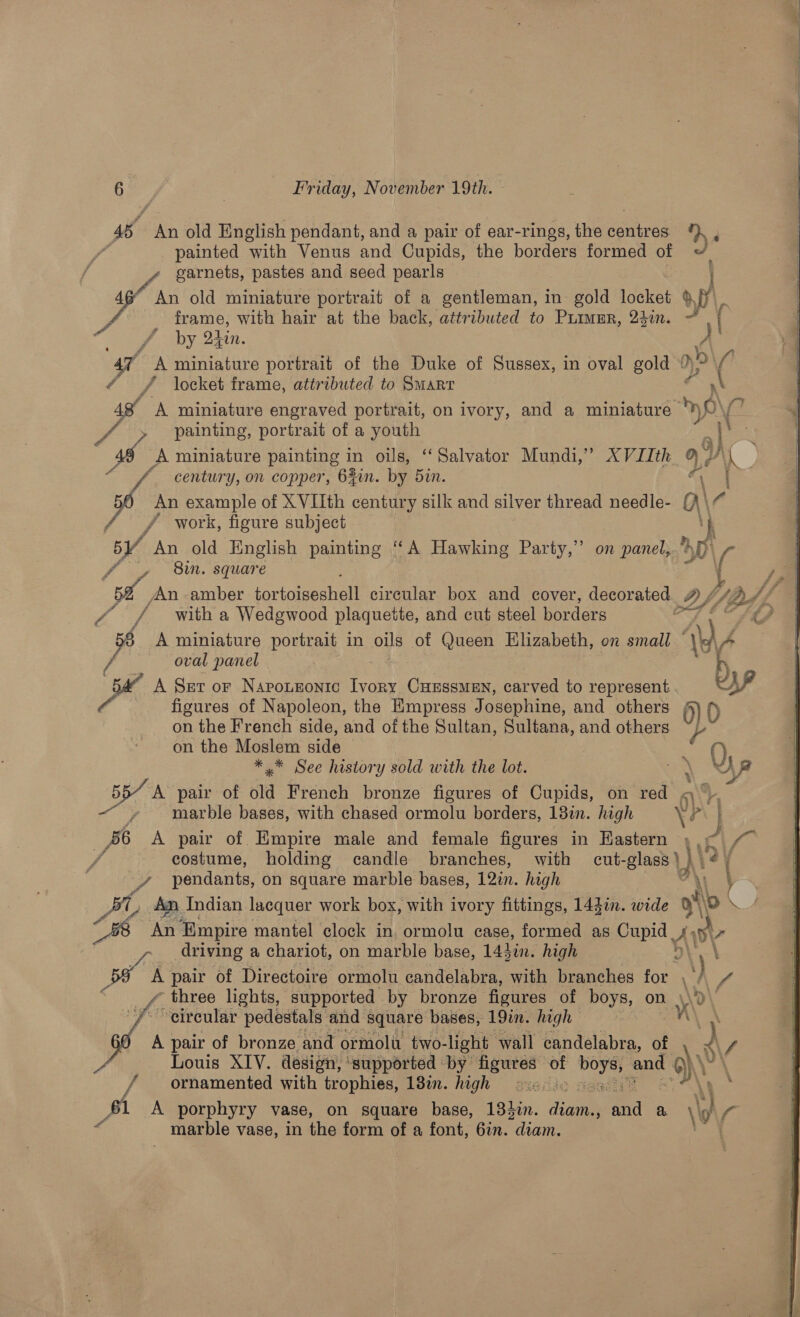 6 Friday, November 19th.
45 An old English pendant, and a pair of ear-rings, the centres
painted with Venus and Cupids, the borders formed of
garnets, pastes and seed pearls
46 An old miniature portrait of a gentleman, in gold locket
frame, with hair at the back, attributed to PLIMER, 2¼in.
by 2¼in.
47 A miniature portrait of the Duke of Sussex, in oval gold
locket frame, attributed to SMART
48 A miniature engraved portrait, on ivory, and a miniature
painting, portrait of a youth
49 A miniature painting in oils, “Salvator Mundi,” XVIIth
century, on copper, 6¾in. by 5in.
50 An example of XVIIth century silk and silver thread needle-
work, figure subject
51 An old English painting “A Hawking Party,” on panel,
8in. square
52 An amber tortoiseshell circular box and cover, decorated
with a Wedgwood plaquette, and cut steel borders
53 A miniature portrait in oils of Queen Elizabeth, on small
oval panel
54 A SET OF NAPOLEONIC IVORY CHESSMEN, carved to represent
figures of Napoleon, the Empress Josephine, and others
on the French side, and of the Sultan, Sultana, and others
on the Moslem side
*** See history sold with the lot.
55 A pair of old French bronze figures of Cupids, on red
marble bases, with chased ormolu borders, 13in. high
56 A pair of Empire male and female figures in Eastern
costume, holding candle branches, with cut-glass
pendants, on square marble bases, 12in. high
57 An Indian lacquer work box, with ivory fittings, 14½in. wide
58 An Empire mantel clock in ormolu case, formed as Cupid
driving a chariot, on marble base, 14½in. high
59 A pair of Directoire ormolu candelabra, with branches for
three lights, supported by bronze figures of boys, on
circular pedestals and square bases, 19in. high
60 A pair of bronze and ormolu two-light wall candelabra, of
Louis XIV. design, supported by figures of boys, and
ornamented with trophies, 18in. high
61 A porphyry vase, on square base, 13½in. diam., and a
marble vase, in the form of a font, 6in. diam.